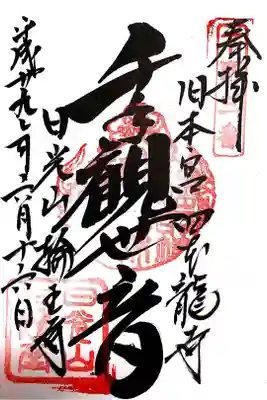 奉拝
旧本宮四本龍寺
千手観世音
日光山輪王寺
平成廿九年六月十六日